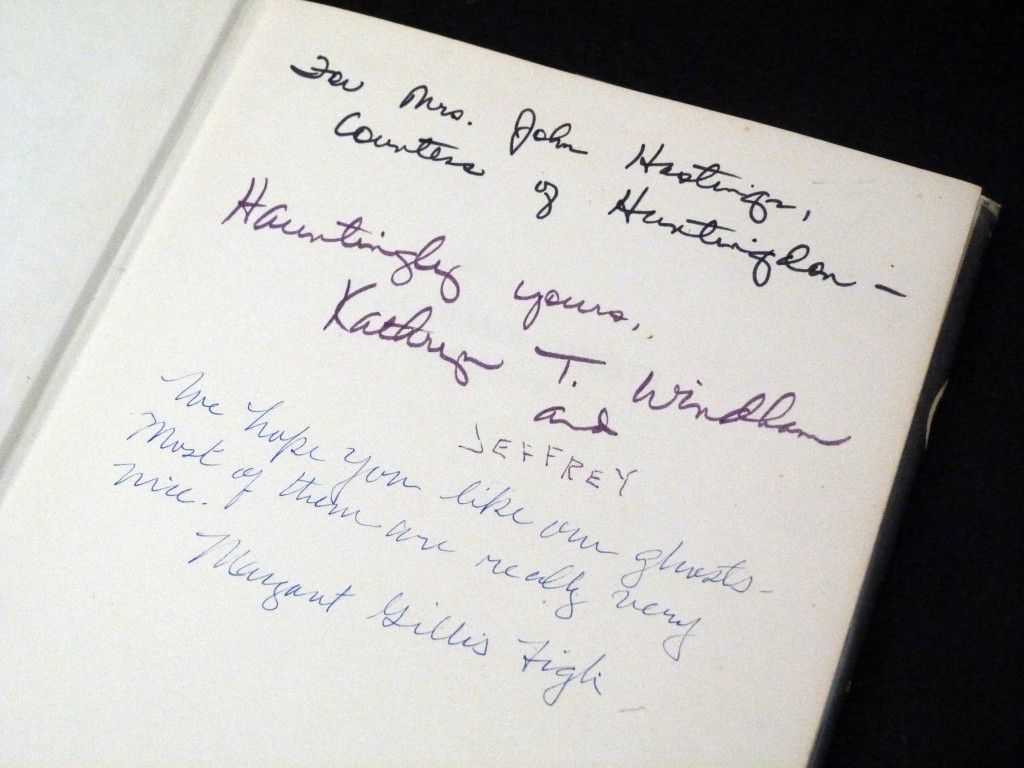 For Mrs. John Hastings,
Countess of Huntingdon —
Hauntingly yours,
Kathryn T. Windham
and
JEFFREY
We hope you like our ghosts -
Most of them are really very
nice.
Margaret Gillis Figh